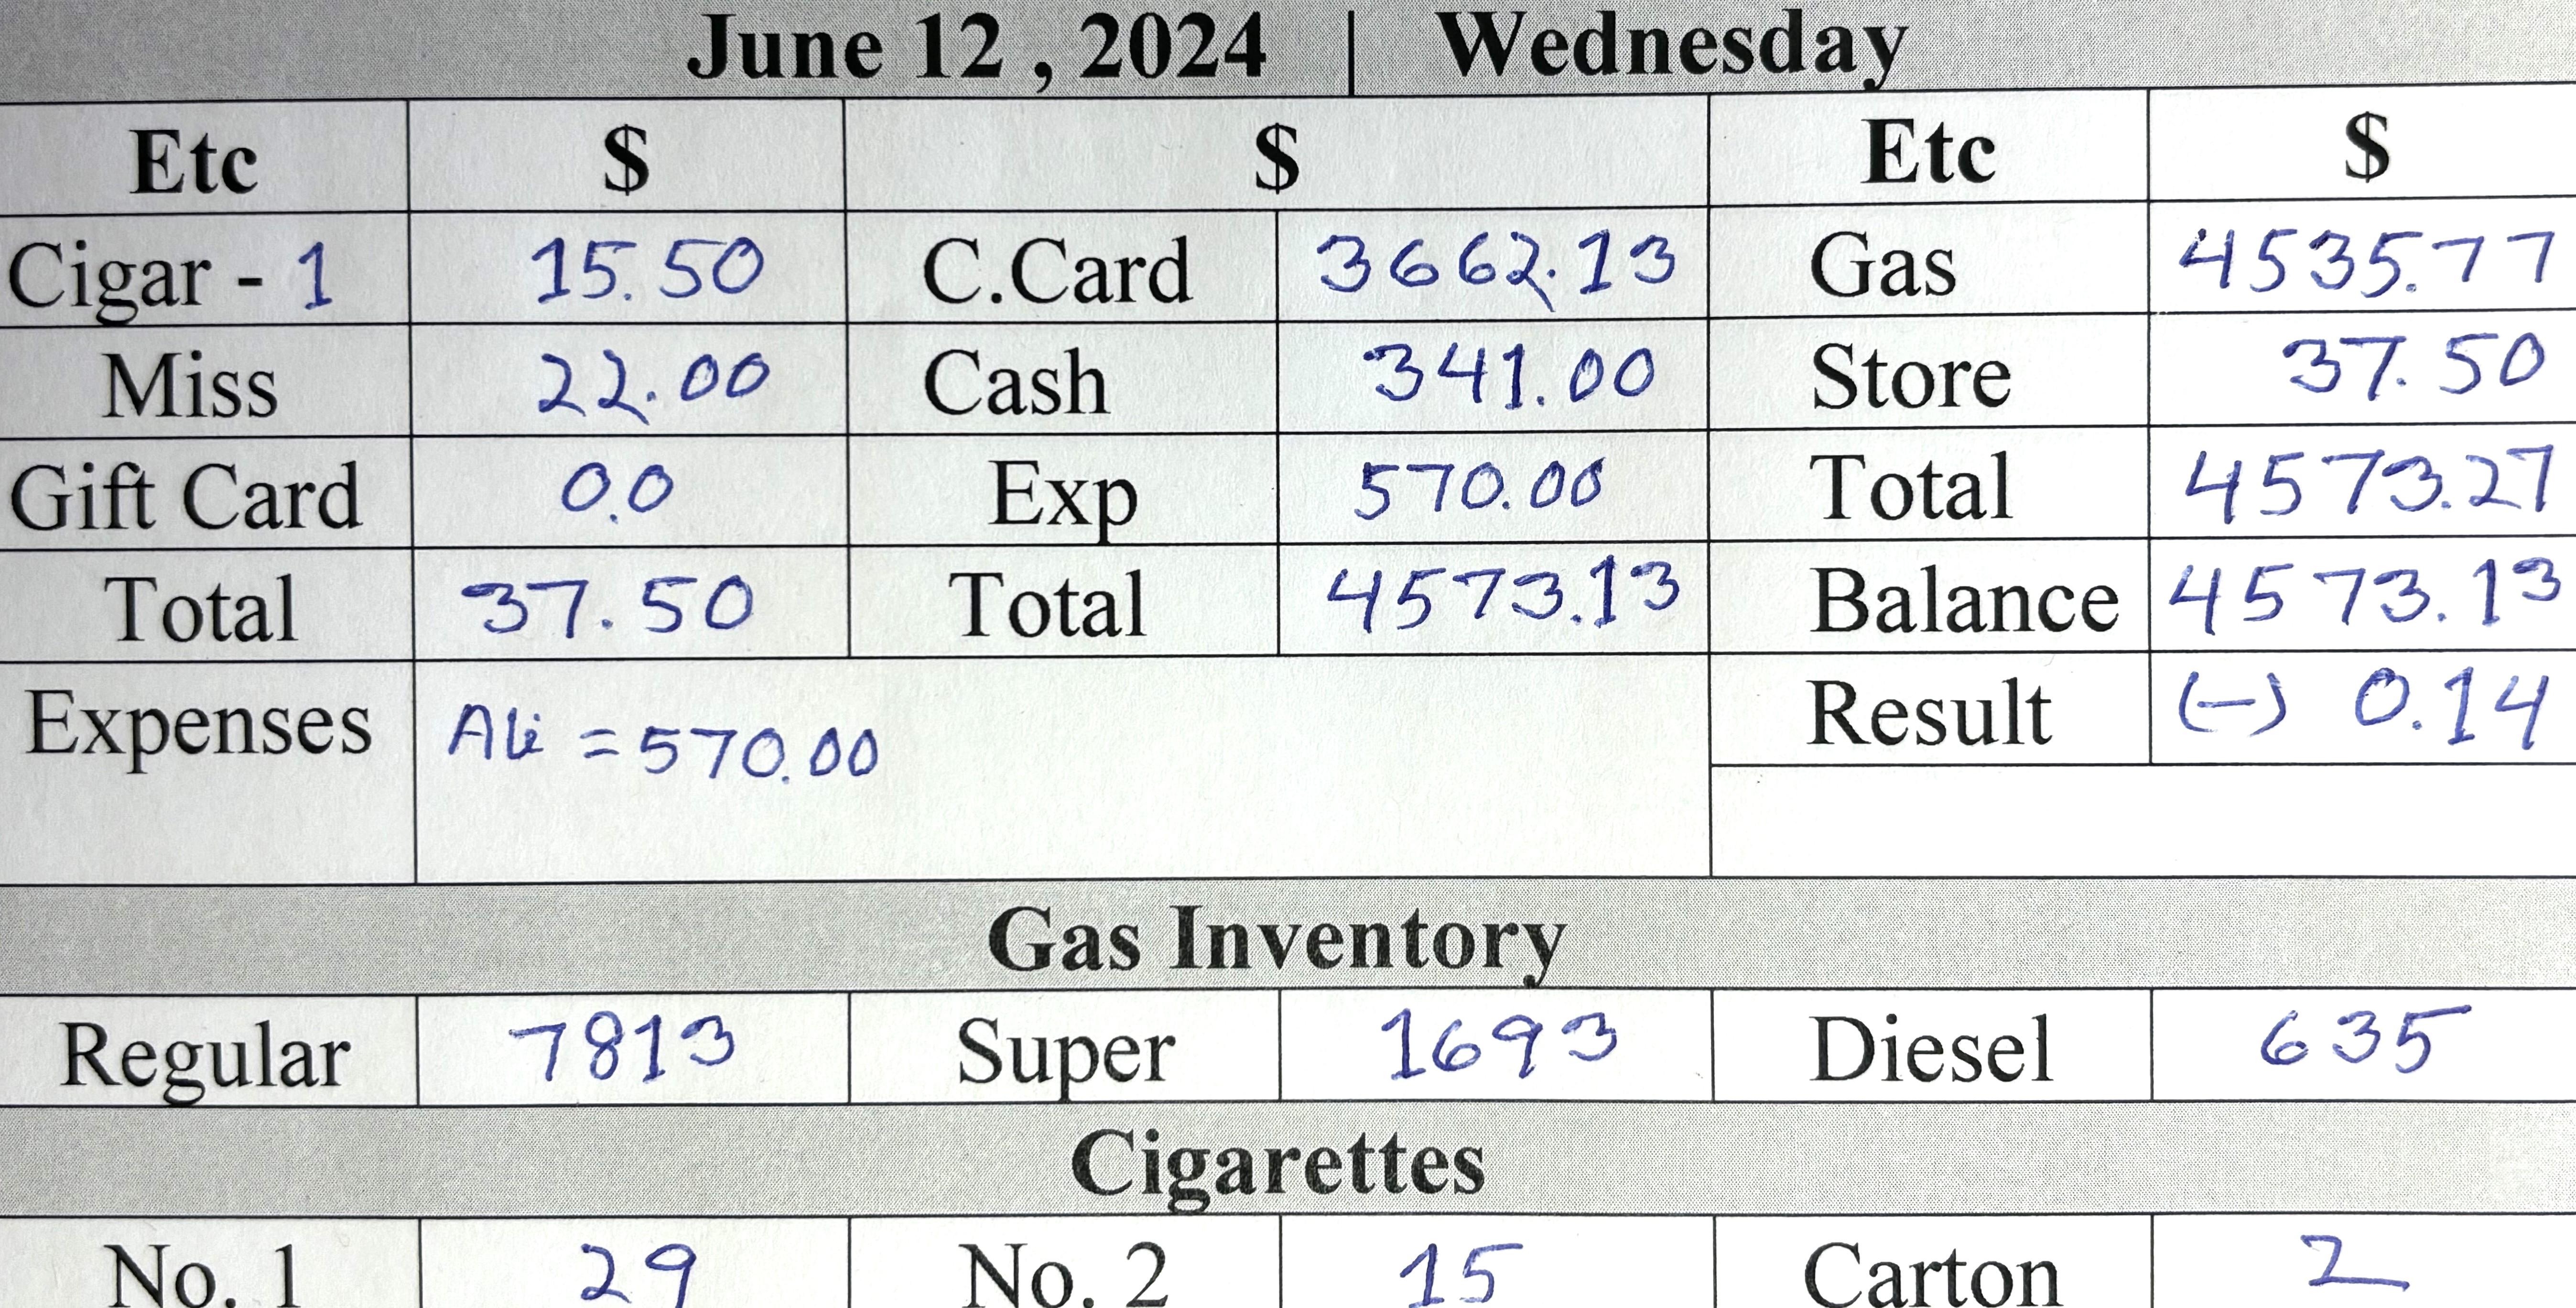 June 12 , 2024 | Wednesday
Etc $ $ Etc $
Cigar - 1 15.50 C.Card 3662.13 Gas 4535.77
Miss 22.00 Cash 341.00 Store 37.50
Gift Card 0.0 Exp 570.00 Total 4573.27
Total 37.50 Total 4573.13 Balance 4573.13
Expenses Ali = 570.00 Result (-) 0.14
Gas Inventory
Regular 7813 Super 1693 Diesel 635
Cigarettes
No. 1 29 No. 2 15 Carton 2